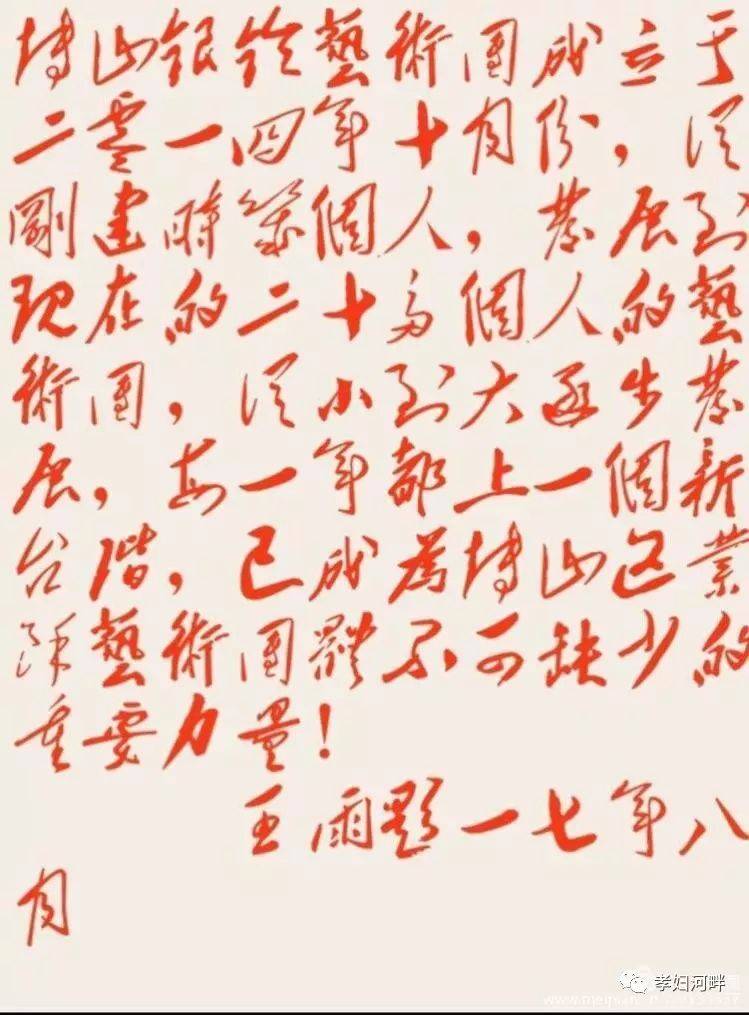 博山银铃藝術團成立于
二零一四年十月份，從
剛建時幾個人，發展到
現在的二十多個人的藝
術團，從小到大逐步發
展，每一年都上一個新
台階，已成為博山區業
餘藝術團體不可缺少的
重要力量！
王雨題一七年八
月
孝妇河畔